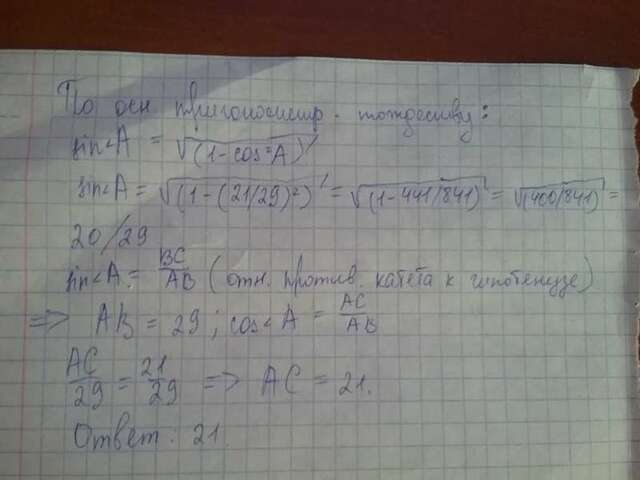 По осн тригонометр. тождеству:
sin<A = √(1-cos²A)
sin<A = √(1-(21/29)²) = √(1-441/841) = √(400/841) =
20/29
sin<A = BC/AB (отн. против. катета к гипотенузе)
=> AB = 29; cos<A = AC/AB
AC/29 = 21/29 => AC = 21.
Ответ: 21.